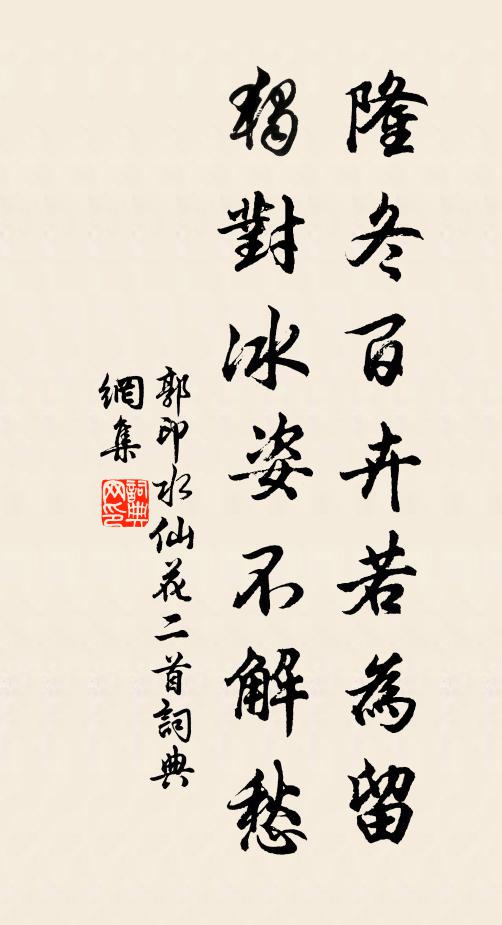 隆冬百卉若為留
獨對冰姿不解愁
郭印水仙花二首詞典
網集
詞典網印